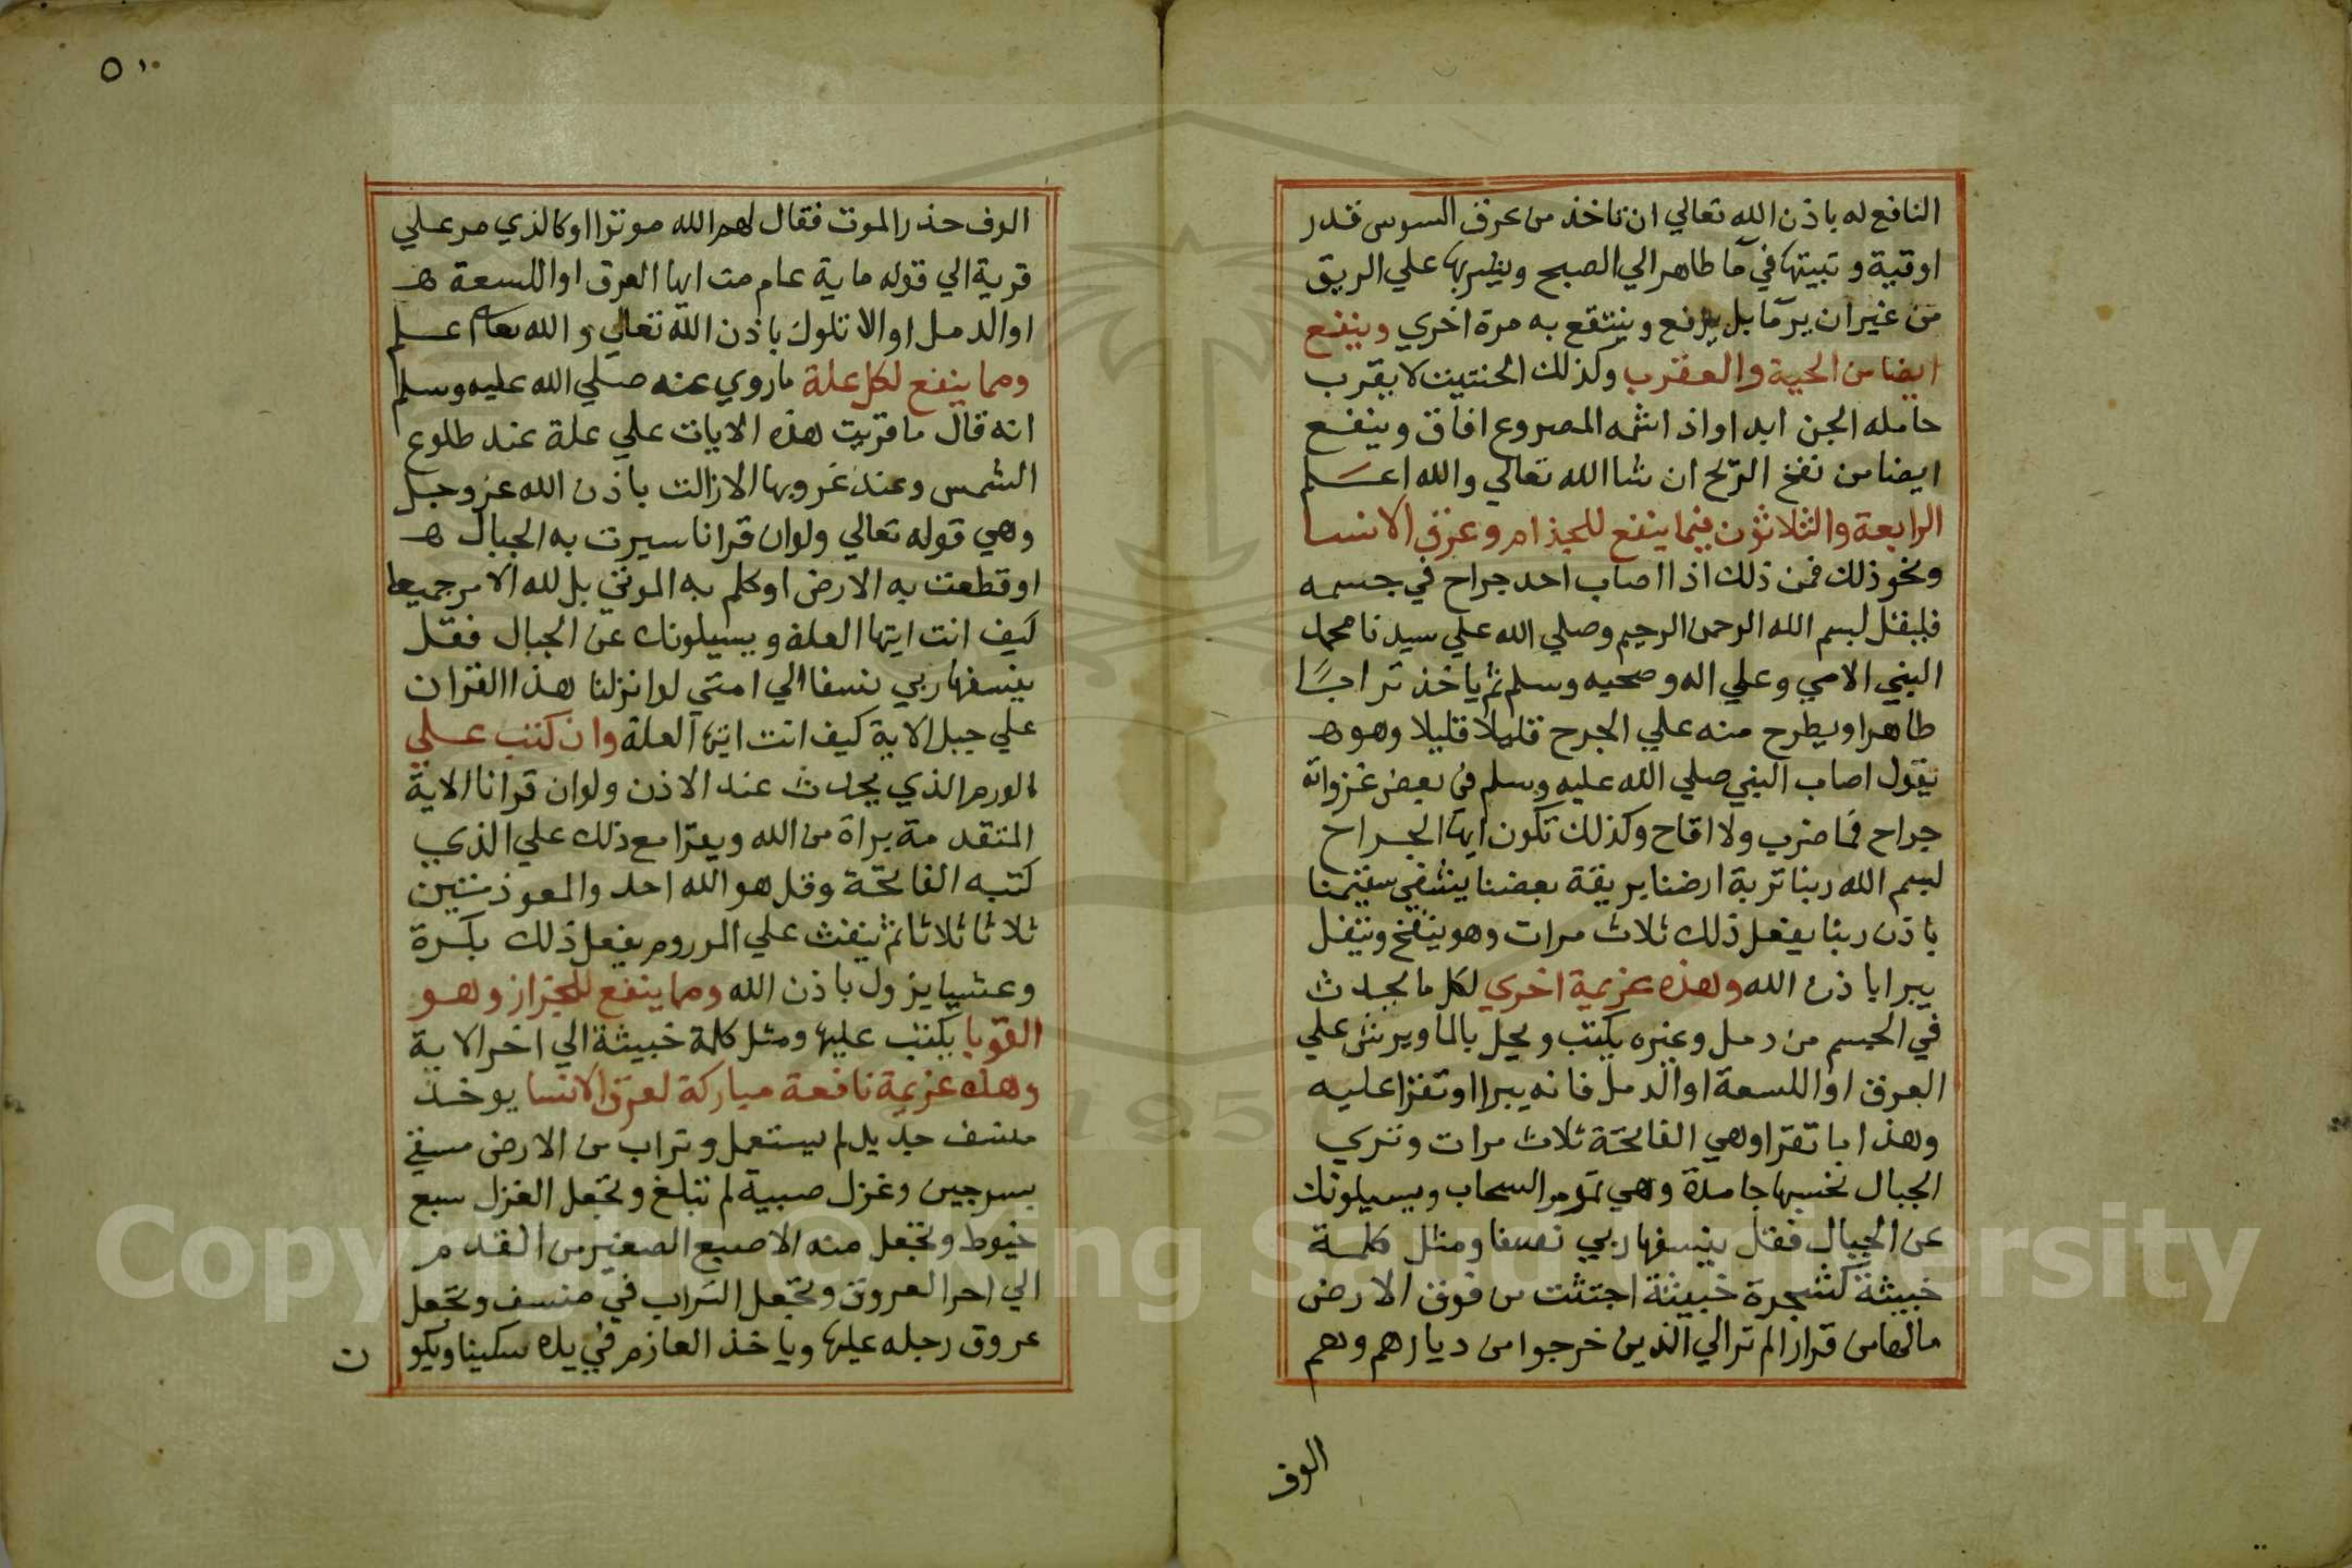 النافع له باذن الله تعالي ان تاخذ من عرق السوس قدر
اوقية و تبيتها في مآ طاهر الي الصبح ويشربها علي الريق
من غير ان يرما بل يرفع وينتفع به مرة اخري وينفع
ايضا من الحية والعقرب وكذلك الحنتيت لا يقرب
حامله الجن ابدا واذا شمه المصروع افاق وينفع
ايضا من نفخ الريح ان شا الله تعالي والله اعلم
الرابعة والثلاثون فيما ينفع للجذام وعرق الانسا
ونحو ذلك فمن ذلك اذا اصاب احد جراح في جسمه
فليقل بسم الله الرحمن الرحيم وصلي الله علي سيدنا محمد
النبي الامي وعلي اله وصحبه وسلم ثم ياخذ ترابا
طاهرا ويطرح منه علي الجرح قليلا قليلا وهو ه
يقول اصاب النبي صلي الله عليه وسلم في بعض غزواته
جراح فما ضرب ولا اقاح وكذلك تكون ايها الجراح
بسم الله ربنا تربة ارضنا بريقة بعضنا يشفي سقيمنا
باذن ربنا يفعل ذلك ثلاث مرات وهو ينفخ ويتفل
يبرا باذن الله وهذه عزيمة اخري لكل ما يحدث
في الجسم من دمل وغيره يكتب ويحل بالما ويرش علي
العرق او اللسعة او الدمل فانه يبرا او تقرا عليه
وهذا ما تقرا وهي الفاتحة ثلاث مرات وتري
الجبال تحسبها جامدة وهي تمر مر السحاب ويسيلونك
عن الجبال فقل ينسفها ربي نسفا ومثل كلمة
خبيثة كشجرة خبيثة اجتثت من فوق الارض
مالها من قرار الم تر الي الذين خرجوا من ديارهم وهم
الوف
٥٠
الوف حذر الموت فقال لهم الله موتوا او كالذي مر علي
قرية الي قوله ماية عام مت ايها العرق او اللسعة ه
او الدمل او الاتلوك باذن الله تعالي والله تعالى اعلم
ومما ينفع لكل علة ما روي عنه صلي الله عليه وسلم
انه قال ما قريت هذه الايات علي علة عند طلوع
الشمس وعند غروبها الا زالت باذن الله عز وجل
وهي قوله تعالي ولو ان قرانا سيرت به الجبال ه
او قطعت به الارض او كلم به الموتي بل لله الامر جميعا
كيف انت ايتها العلة ويسيلونك عن الجبال فقل
ينسفها ربي نسفا الي امتي لو انزلنا هذا القران
علي جبل الاية كيف انت ايتها العلة وان كتب علي
الورم الذي يحدث عند الاذن ولو ان قرانا الاية
المتقدمة براة من الله ويقرا مع ذلك علي الذي
كتبه الفاتحة وقل هو الله احد والمعوذتين
ثلاثا ثلاثا ثم ينفث علي المورم يفعل ذلك بكرة
وعشيا يزول باذن الله ومما ينفع للحزاز وهو
القوبا يكتب عليها ومثل كلمة خبيثة الي اخر الاية
وهذه عزيمة نافعة مباركة لعرق الانسا يوخذ
منسف جديد لم يستعمل وتراب من الارض مسقي
بسرجين وغزل صبية لم تبلغ وتجعل الغزل سبع
خيوط وتجعل منه الاصبع الصغير من القدم
الي احر العروق وتجعل التراب في منسف وتجعل
عروق رجله عليها وياخذ العازم في يده سكينا ويكو
ن
Copyright © King Saud University
195